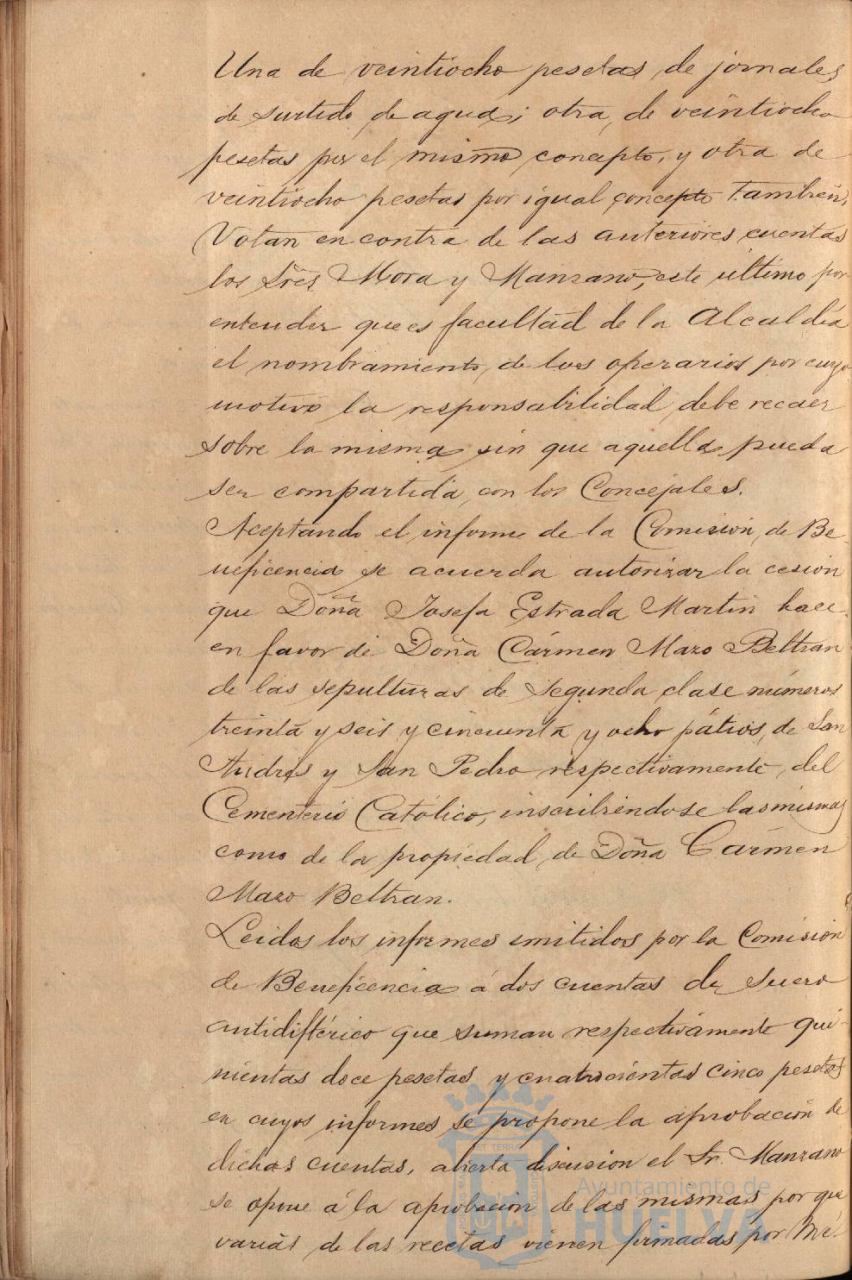 Una de veintiocho pesetas, de jornales
de surtido de agua; otra, de veintiocho
pesetas por el mismo concepto, y otra de
veintiocho pesetas por igual concepto tambien.
Votan en contra de las anteriores cuentas
los Sres Mora y Manzano, este último por
entender que es facultad de la Alcaldía
el nombramiento, de los operarios por cuyo
motivo la responsabilidad, debe recaer
sobre la misma sin que aquella pueda
ser compartida, con los Concejales.
Aceptando el informe de la Comisión, de Be
neficencia se acuerda autorizar la cesión
que Doña Josefa Estrada Martin hace
en favor de Doña Cármen Mazo Beltran
de las sepulturas de segunda clase números
treinta y seis y cincuenta y ocho pátios, de San
Andrés y San Pedro respectivamente, del
Cementerio Católico, inscribiendose las mismas
como de la propiedad, de Doña Cármen
Mazo Beltran.
Leidos los informes emitidos por la Comisión
de Beneficencia á dos cuentas de suero
antidiftérico que suman respectivamente qui-
nientas doce pesetas y cuatrocientas cinco pesetas
en cuyos informes se propone la aprobación de
dichas cuentas, abierta discusion el Sr. Manzano
se opone á la aprobación de las mismas por que
varias de las recetas vienen firmadas por Mé-
Ayuntamiento de
HUELVA